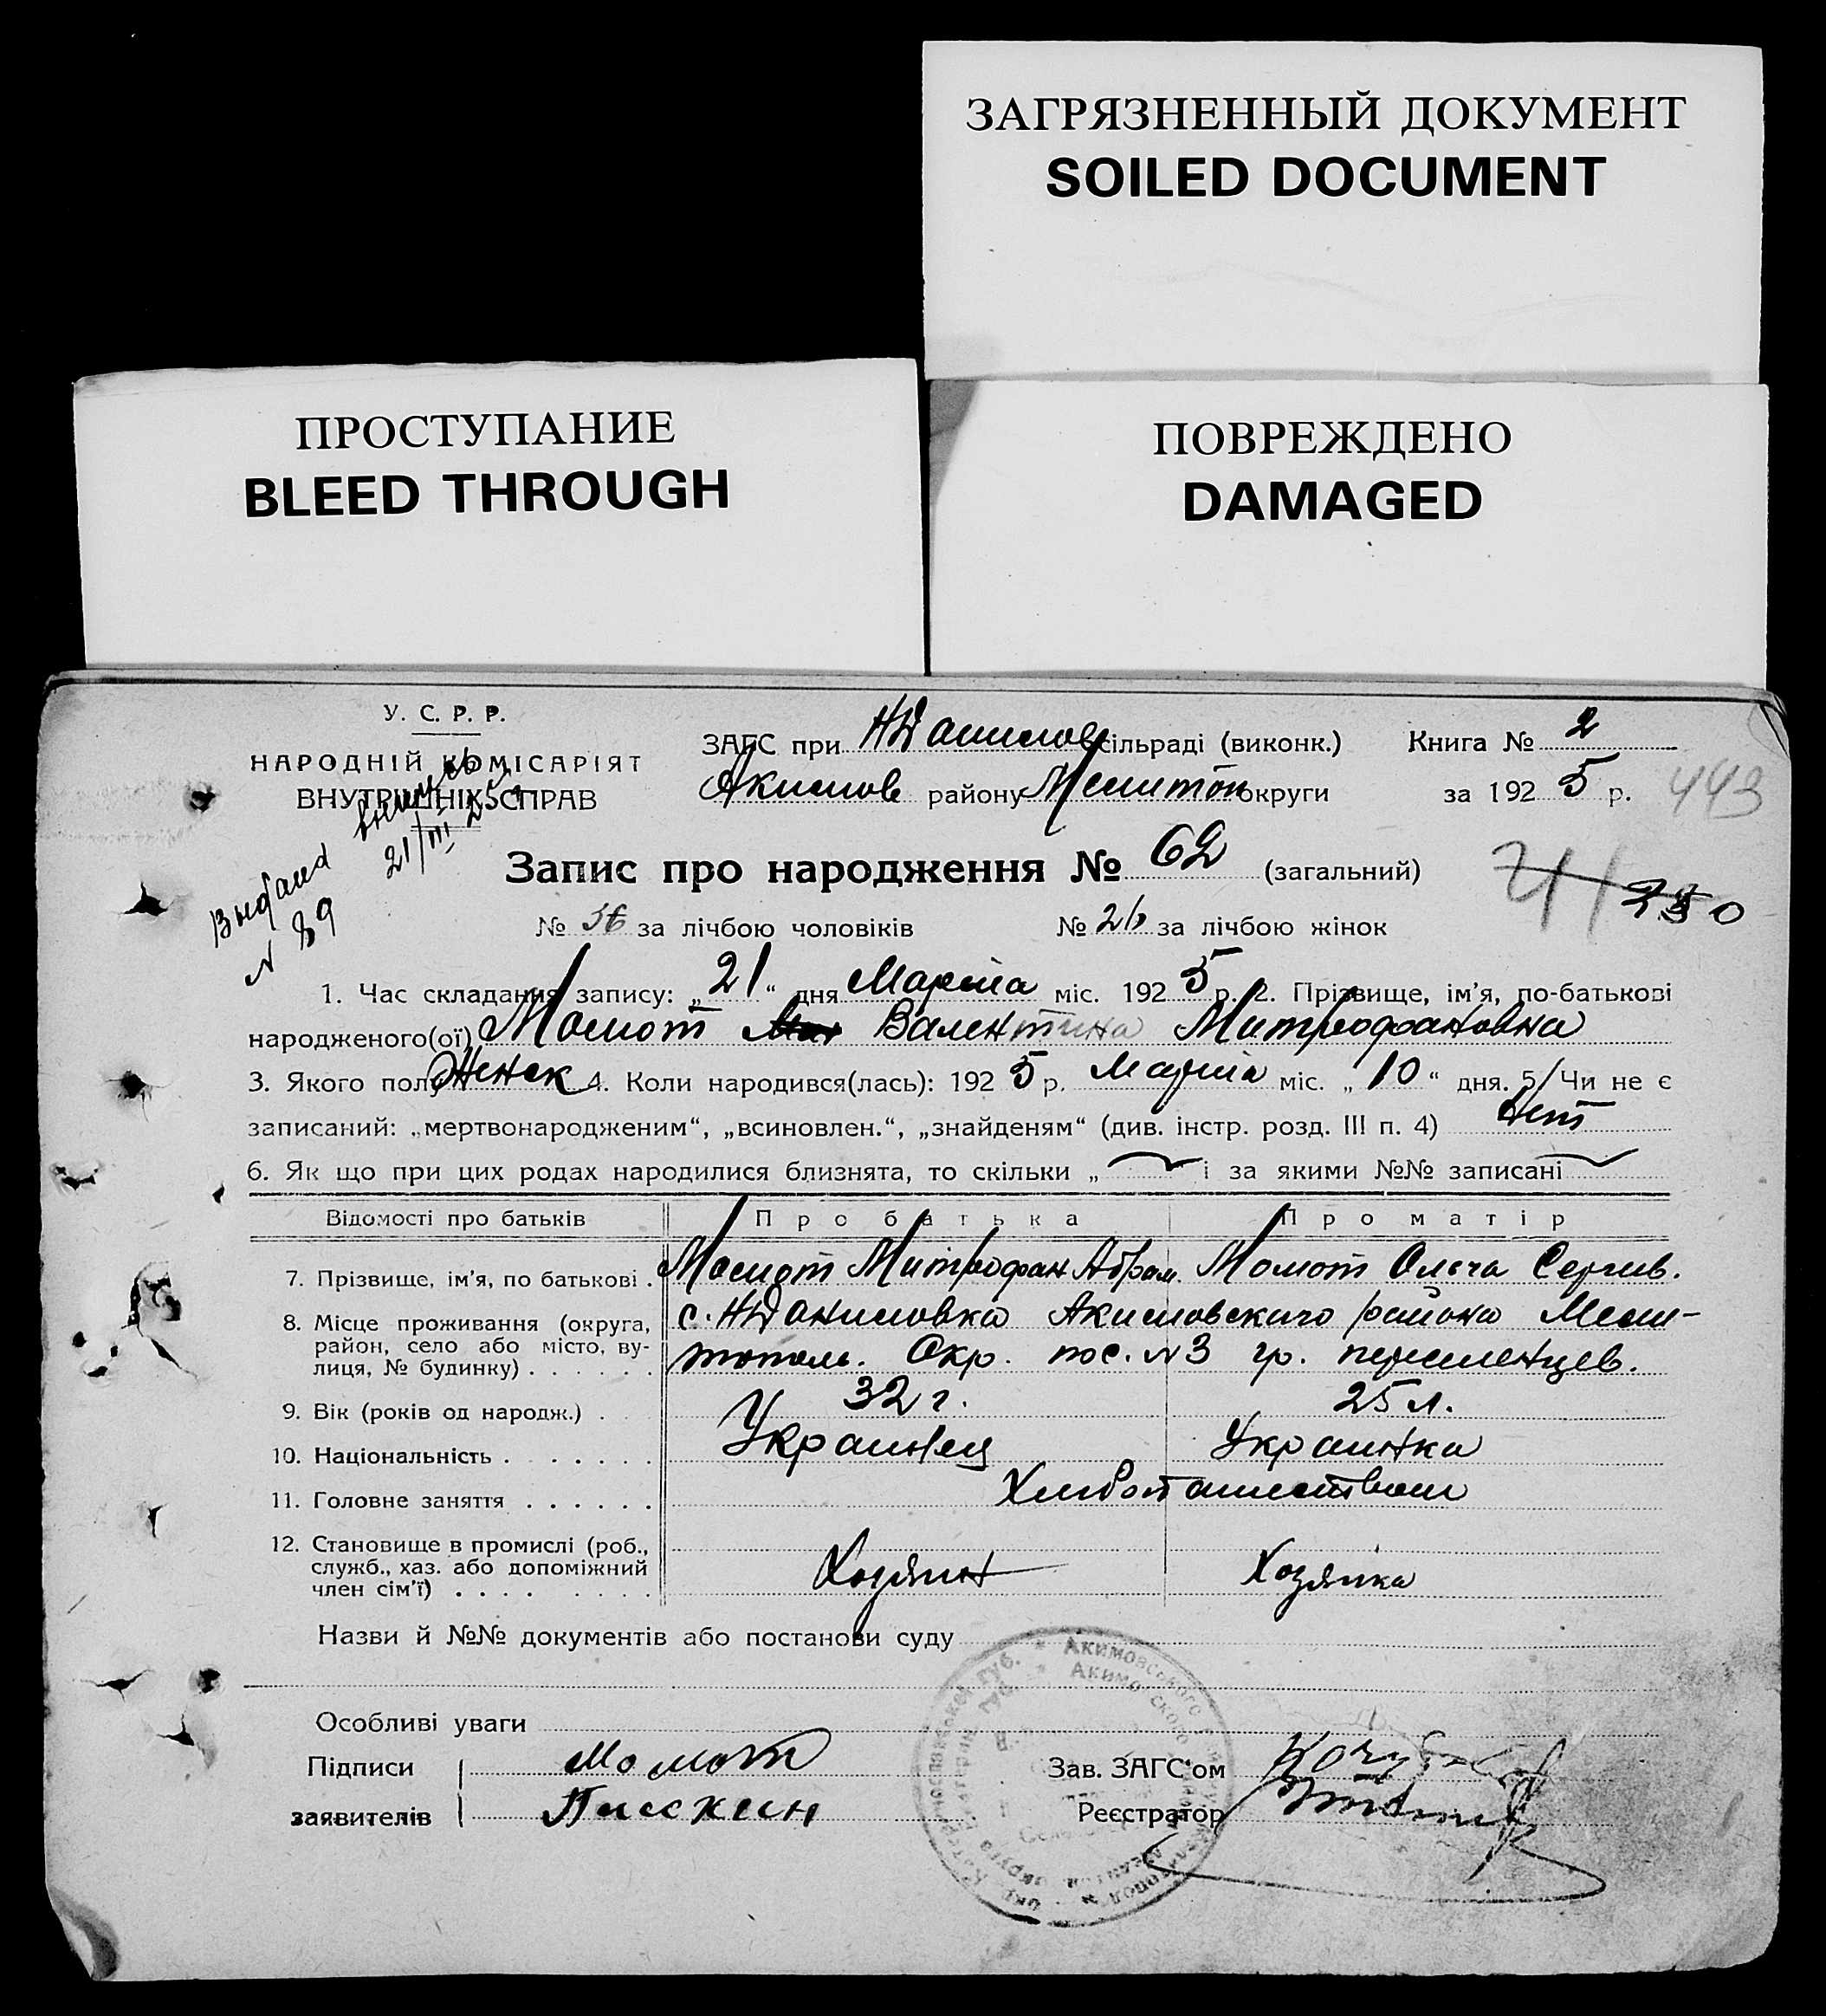 ЗАГРЯЗНЕННЫЙ ДОКУМЕНТ
SOILED DOCUMENT
ПРОСТУПАНИЕ
BLEED THROUGH
ПОВРЕЖДЕНО
DAMAGED
У. С. Р. Р.
НАРОДНІЙ КОМІСАРІЯТ
ВНУТРІШНІХ СПРАВ
Выдана выпись
21/III 25 г.
N 89
ЗАГС при НДанилов сільраді (виконк.) Книга № 2
Акимов району Мелитоп округи за 1925 р. 443
Запис про народження № 62 (загальний)
71 230
№ 36 за лічбою чоловіків № 26 за лічбою жінок
1. Час складання запису: „21“ дня Марта міс. 1925 р. 2. Прізвище, ім’я, по-батькові
народженого(ої) Момот Валентина Митрофановна
3. Якого полу Женск 4. Коли народився(лась): 1925 р. Марта міс. „10“ дня. 5. Чи не є
записаний: „мертвонародженим“, „всиновлен.“, „знайденям“ (див. інстр. розд. III п. 4) Нет
6. Як що при цих родах народилися близнята, то скільки „ і за якими №№ записані
Відомості про батьків Про батька Про матір
7. Прізвище, ім’я, по батькові . Момот Митрофан Абрам. Момот Ольга Сергив.
8. Місце проживання (округа, район, село або місто, вулиця, № будинку) . . . . . . с. НДаниловка Акимовского района Мели-
тополь. Окр. пос. N3 гр. переменцев.
9. Вік (років од народж.) . 32 г. 25 л.
10. Національність . . . . . . . Украинец Украинка
11. Головне заняття . . . . . . Хлибопашеством
12. Становище в промислі (роб., служб., хаз. або допоміжний член сім’ї) . . . . Хозяин Хозяйка
Назви й №№ документів або постанови суду
Особливі уваги
Підписи Момот Зав. ЗАГС’ом
заявителів Пискун Реєстратор